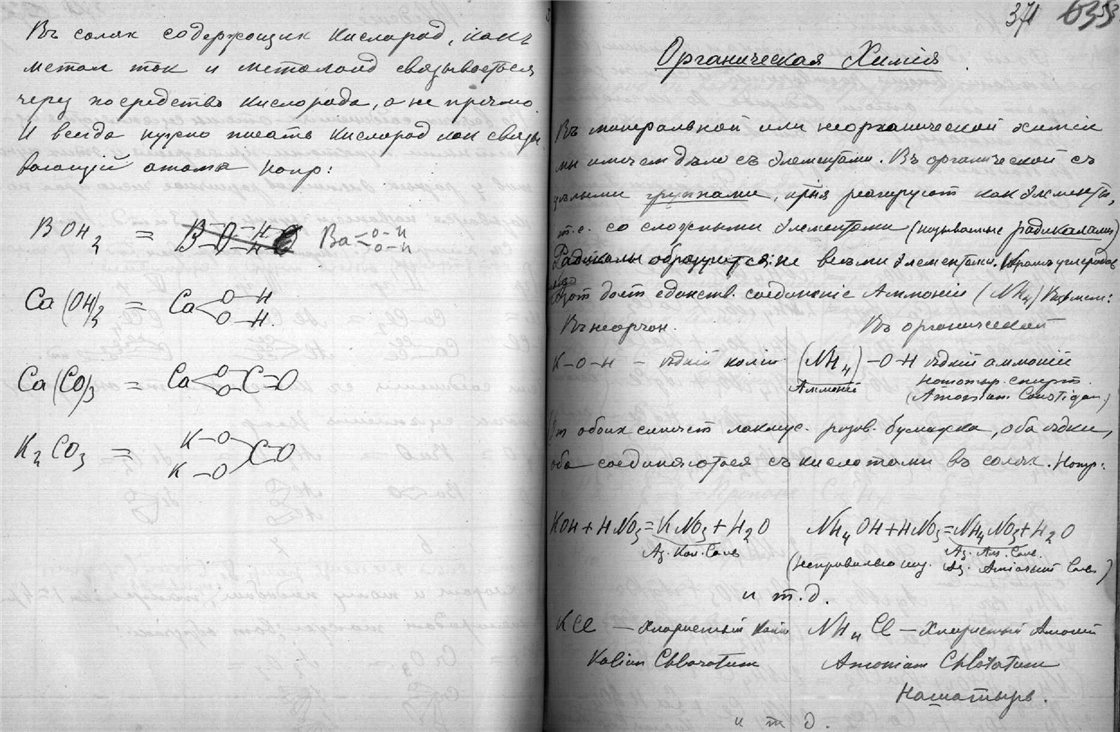 Въ солях содержащих кислород, какъ
метал так и металоид связывается
через посредство кислорода, а не прямо.
И всегда нужно писать кислород как связы
вающий атома напр:
BOH2 = Ba<O-H O-H
Ca(OH)2 = Ca<O-H O-H.
Ca(CO)3 = Ca<O O>C=O
K2CO3 = K-O K-O>C=O
371 635
Органическая Химія
Въ минеральной или неорганической химіи
мы имеем дѣло съ Элементами. Въ органической съ
цѣлыми группами, крыя реагируют как Элементы,
т.е. со сложными Элементами (называемые радикалами)
Радикалы образуются не всѣми Элементами. Кромѣ углерода
Азот дает единств. соединеніе Аммоній (NH4)
Въ неорган. Въ органической
K-O-H - ѣдкій калій (NH4)-O-H ѣдкій аммоній
Аммоній нашатыр. спирт.
От обоих синеет лакмус. розов. бумажка, оба ѣдки,
оба соединяются съ кислотами въ солях. Напр:
KOH + HNO3 = KNO3 + H2O NH4OH + HNO3 = NH4NO3 + H2O
Аз. Кал. Соль Аз. Ам. Соль.
(неправильно Аз. Аміачная Соль)
и т.д.
KCl - Хлористый Калій NH4Cl - Хлористый Амоній
Kalium Chloratum Amonium Chloratum
Нашатырь.
и т д.